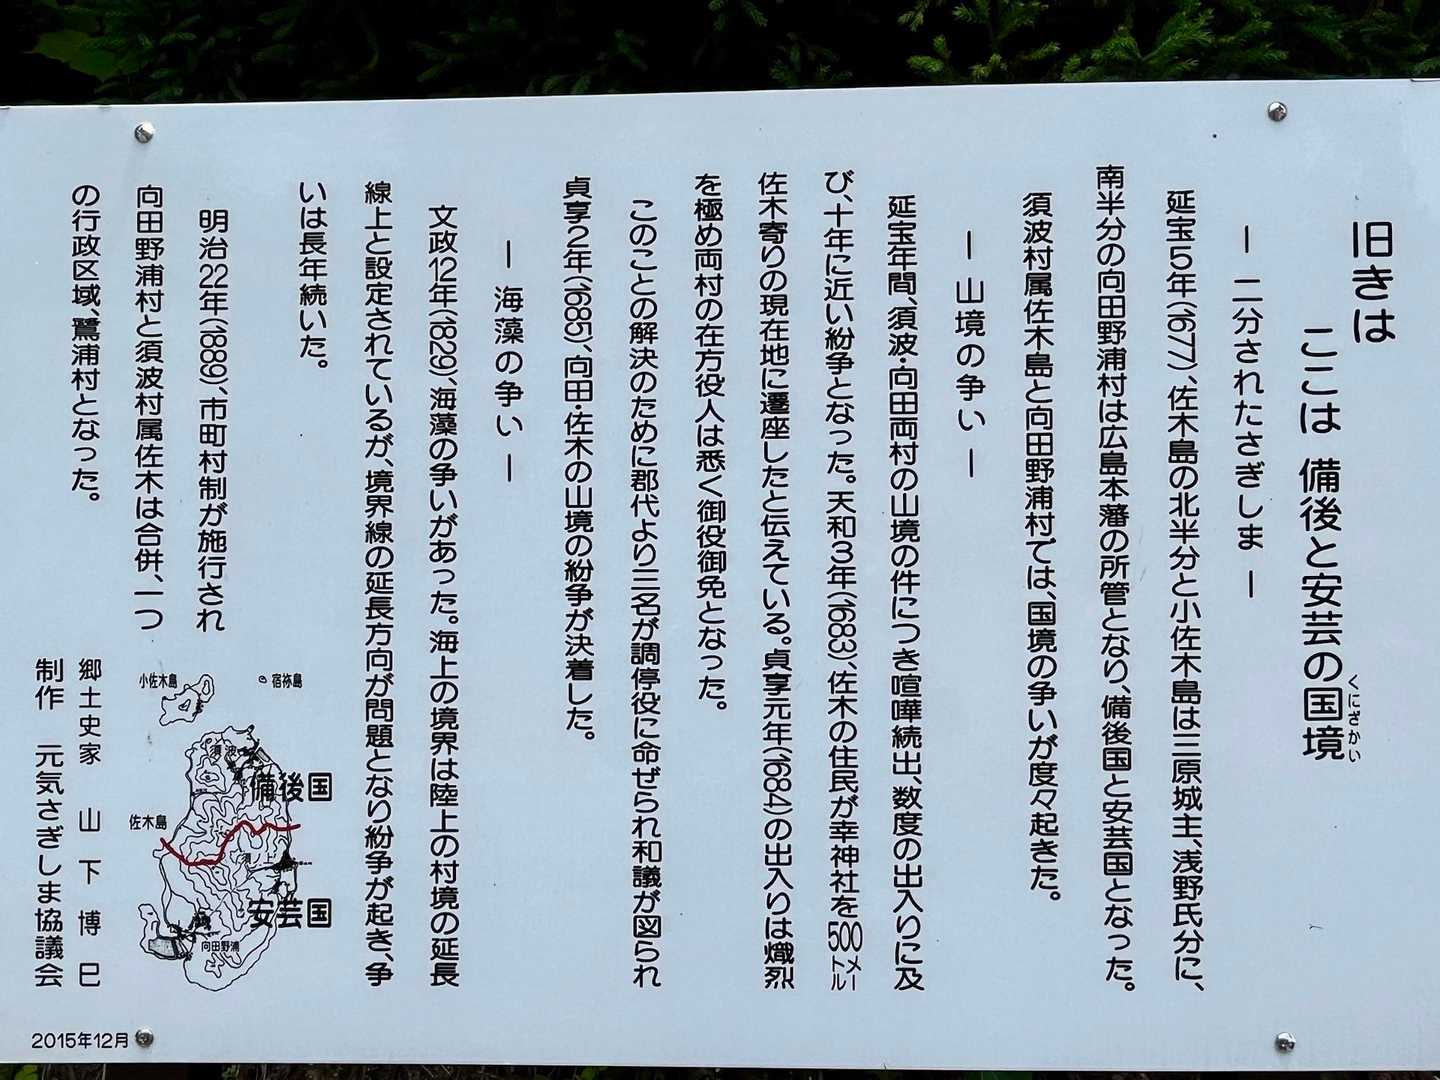 旧きは
ここは 備後と安芸の国境
くにざかい
― 二分されたさぎしま ―
延宝5年(1677)、佐木島の北半分と小佐木島は三原城主、浅野氏分に、
南半分の向田野浦村は広島本藩の所管となり、備後国と安芸国となった。
須波村属佐木島と向田野浦村では、国境の争いが度々起きた。
― 山境の争い ―
延宝年間、須波・向田両村の山境の件につき喧嘩続出、数度の出入りに及
び、十年に近い紛争となった。天和3年(1683)、佐木の住民が幸神社を500メートル
佐木寄りの現在地に遷座したと伝えている。貞享元年(1684)の出入りは熾烈
を極め両村の在方役人は悉く御役御免となった。
このことの解決のために郡代より三名が調停役に命ぜられ和議が図られ
貞享2年(1685)、向田・佐木の山境の紛争が決着した。
― 海藻の争い ―
文政12年(1829)、海藻の争いがあった。海上の境界は陸上の村境の延長
線上と設定されているが、境界線の延長方向が問題となり紛争が起き、争
いは長年続いた。
明治22年(1889)、市町村制が施行され
向田野浦村と須波村属佐木は合併、一つ
の行政区域、鷺浦村となった。
小佐木島
宿祢島
須波
備後国
佐木島
須上
安芸国
向田野浦
郷土史家 山下博巳
制作 元気さぎしま協議会
2015年12月